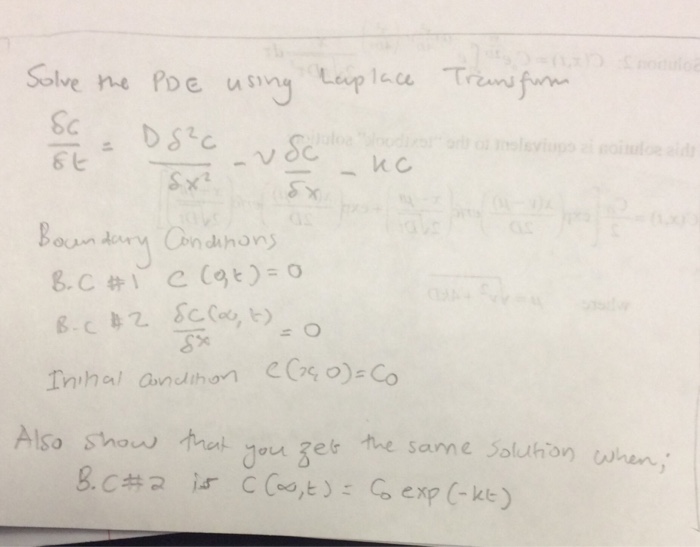 Solve the PDE using Laplace Transform
δc/δt = Dδ²c/δx² - v δc/δx - kc
Boundary Conditions
B.C #1 C(0,t)=0
B.C #2 δC(∞,t)/δx = 0
Initial condition C(x,0)=C₀
Also show that you get the same solution when;
B.C#2 is C(∞,t) = C₀ exp(-kt)